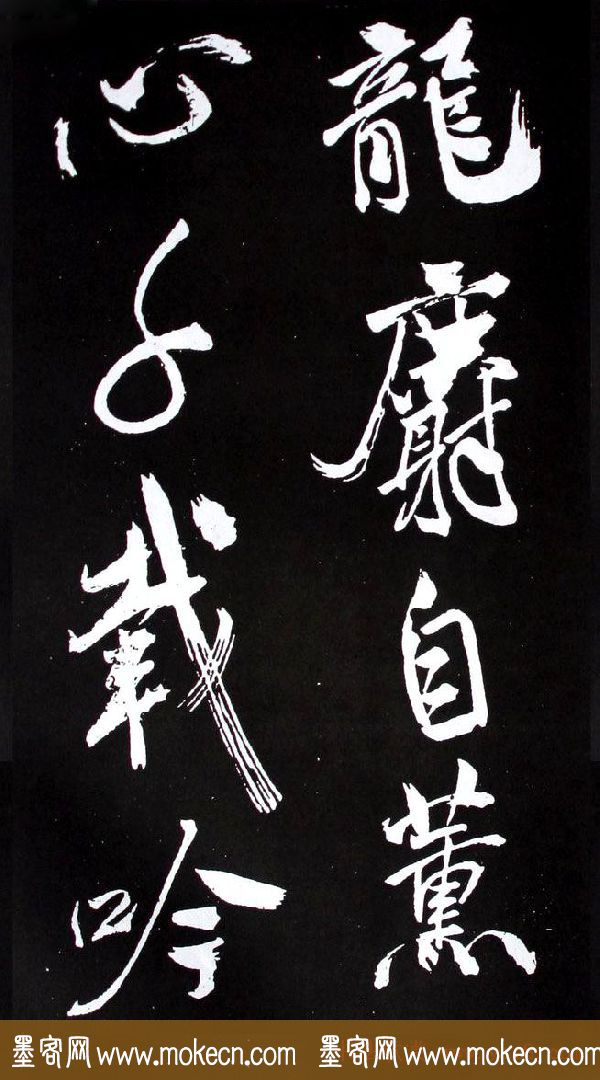 龍麝自薰
心千載吟
墨客网 www.mokecn.com 墨客网 www.mokecn.com